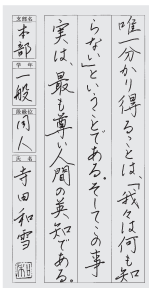 唯一分かり得ることは、「我々は何も知
らない」ということである。そしてこの事
実は、最も尊い人間の英知である。
支部名
本部
学年
一般
段級位
同人
氏名
寺田和雪